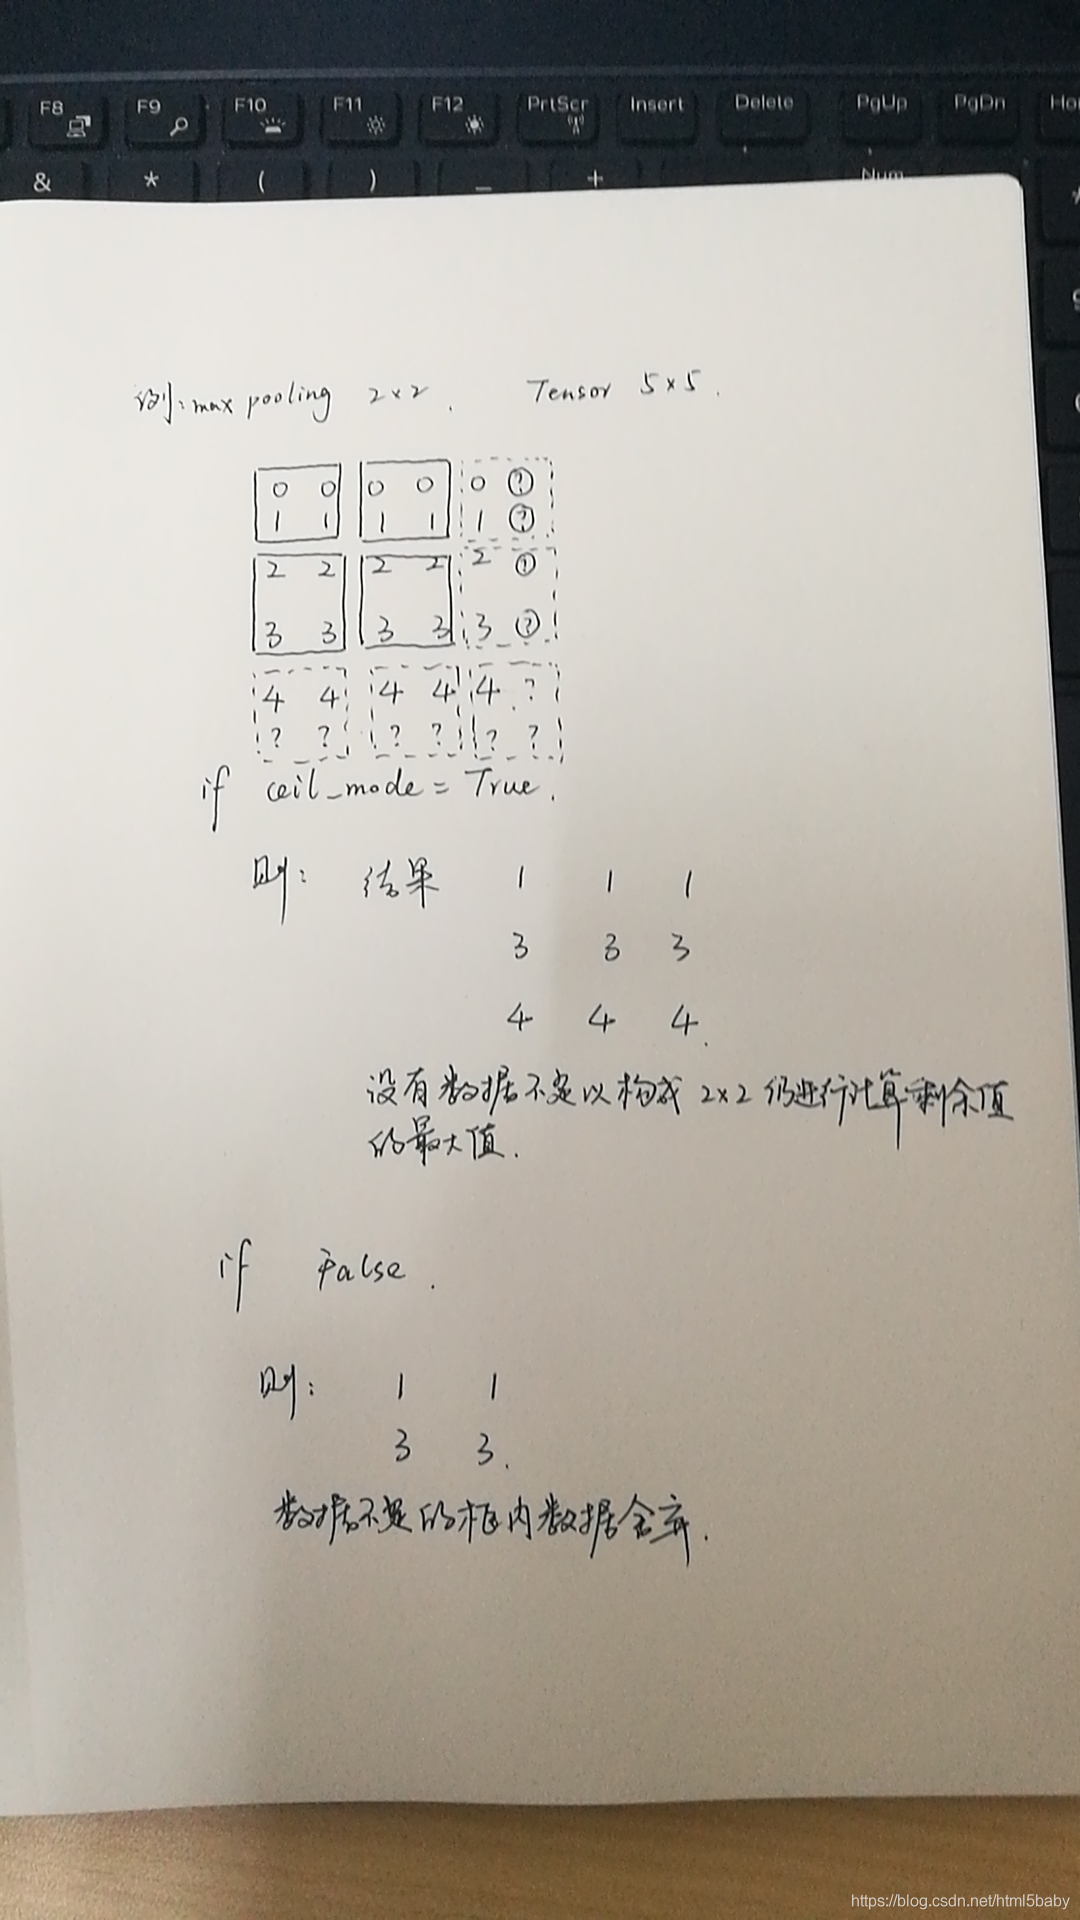 F8 F9 F10 F11 F12 PrtScr Insert Delete PgUp PgDn Ho
& * ( ) _ + Num
例:max pooling 2×2. Tensor 5×5.
0 0 0 0 0 ?
1 1 1 1 1 ?
2 2 2 2 2 ?
3 3 3 3 3 ?
4 4 4 4 4 ?
? ? ? ? ? ?
if ceil_mode = True.
则: 结果 1 1 1
3 3 3
4 4 4.
没有数据不足以构成 2×2 仍进行计算剩余值
的最大值.
if False.
则: 1 1
3 3.
数据不足的框内数据舍弃.
https://blog.csdn.net/html5baby